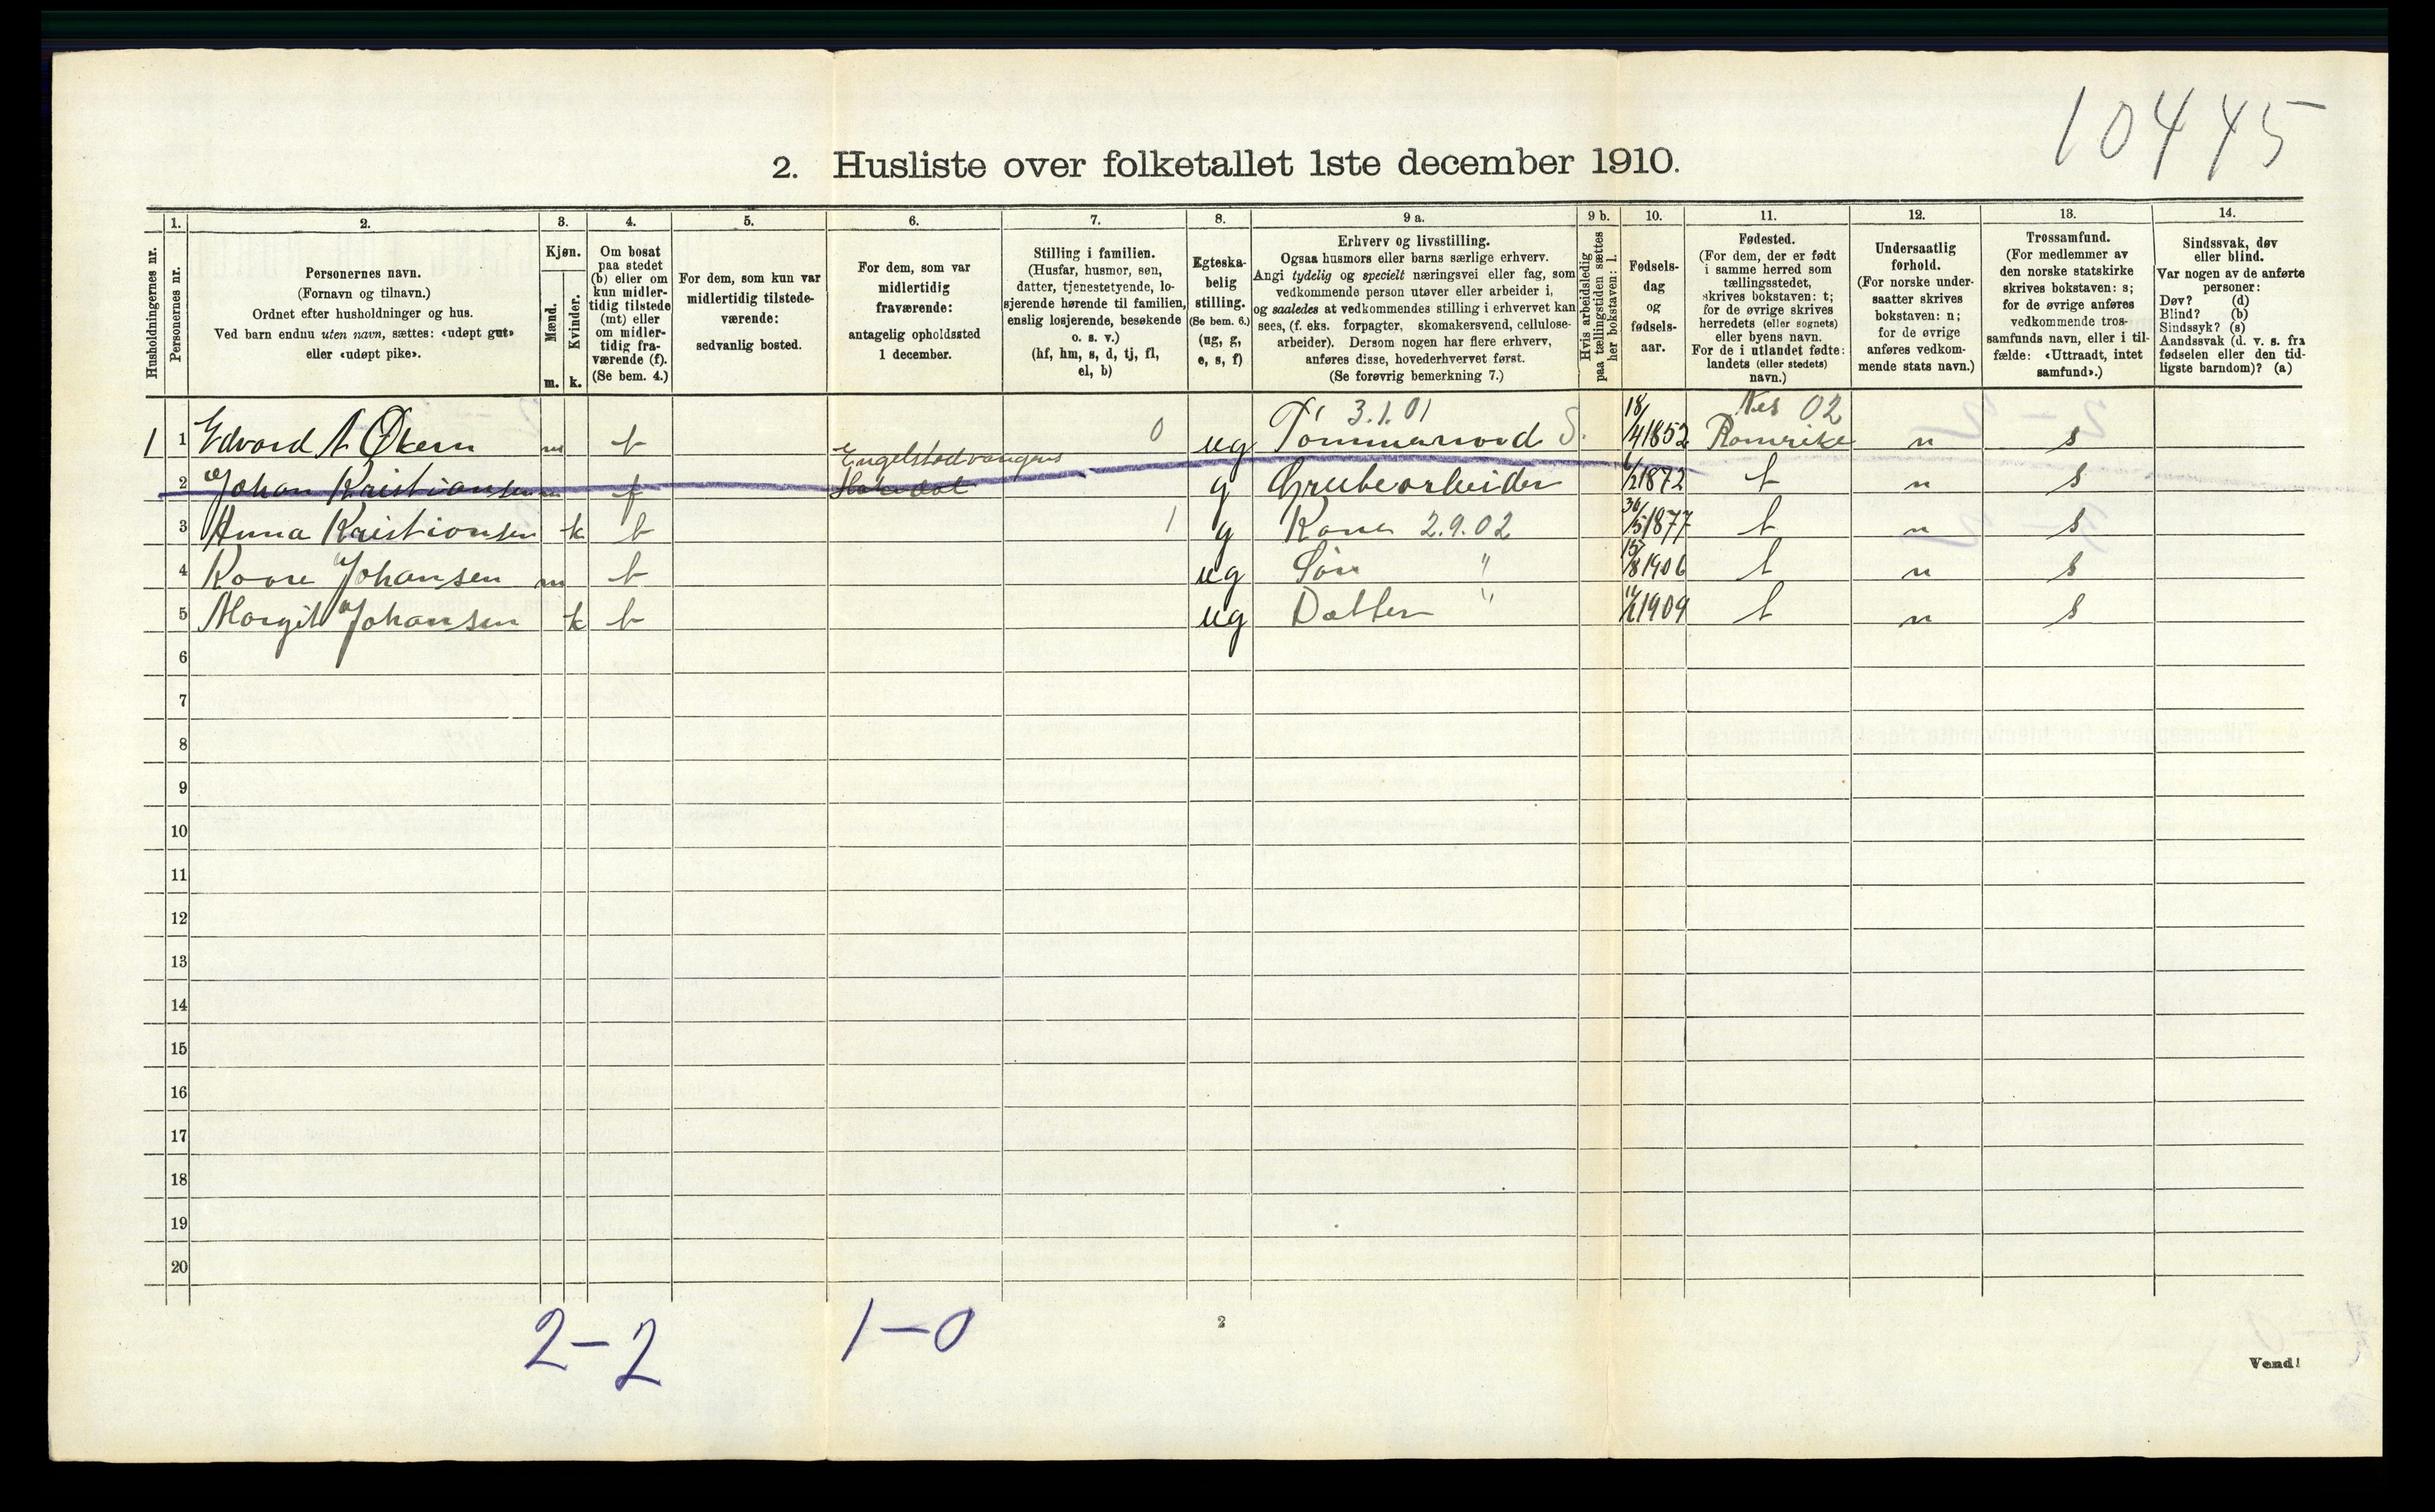 10445
2. Husliste over folketallet 1ste december 1910.
1. 2. 3. 4. 5. 6. 7. 8. 9 a. 9 b. 10. 11. 12. 13. 14.
Husholdningernes nr.
Personernes nr.
Personernes navn.
(Fornavn og tilnavn.)
Ordnet efter husholdninger og hus.
Ved barn endnu uten navn, sættes: «udøpt gut»
eller «udøpt pike».
Kjøn.
Mænd.
Kvinder.
m. k.
Om bosat
paa stedet
(b) eller om
kun midler-
tidig tilstede
(mt) eller
om midler-
tidig fra-
værende (f).
(Se bem. 4.)
For dem, som kun var
midlertidig tilstede-
værende:
sedvanlig bosted.
For dem, som var
midlertidig
fraværende:
antagelig opholdssted
1 december.
Stilling i familien.
(Husfar, husmor, søn,
datter, tjenestetyende, lo-
sjerende hørende til familien,
enslig losjerende, besøkende
o. s. v.)
(hf, hm, s, d, tj, fl,
el, b)
Egteska-
belig
stilling.
(Se bem. 6.)
(ug, g,
e, s, f)
Erhverv og livsstilling.
Ogsaa husmors eller barns særlige erhverv.
Angi tydelig og specielt næringsvei eller fag, som
vedkommende person utøver eller arbeider i,
og saaledes at vedkommendes stilling i erhvervet kan
sees, (f. eks. forpagter, skomakersvend, cellulose-
arbeider). Dersom nogen har flere erhverv,
anføres disse, hovederhvervet først.
(Se forøvrig bemerkning 7.)
Hvis arbeidsledig
paa tællingstiden sættes
her bokstaven: l.
Fødsels-
dag
og
fødsels-
aar.
Fødested.
(For dem, der er født
i samme herred som
tællingsstedet,
skrives bokstaven: t;
for de øvrige skrives
herredets (eller sognets)
eller byens navn.
For de i utlandet fødte:
landets (eller stedets)
navn.)
Undersaatlig
forhold.
(For norske under-
saatter skrives
bokstaven: n;
for de øvrige
anføres vedkom-
mende stats navn.)
Trossamfund.
(For medlemmer av
den norske statskirke
skrives bokstaven: s;
for de øvrige anføres
vedkommende tros-
samfunds navn, eller i til-
fælde: «Uttraadt, intet
samfund».)
Sindssvak, døv
eller blind.
Var nogen av de anførte
personer:
Døv? (d)
Blind? (b)
Sindssyk? (s)
Aandssvak (d. v. s. fra
fødselen eller den tid-
ligste barndom)? (a)
3.1.01 Nes 02
1 1 Edvard A Økern m b 0 ug Tømmermand S. 18/4 1852 Romerike n s
Engelstadvangens
2 Johan Kristiansen m f g Grubearbeider 1872 t n s
3 Anna Kristiansen k b 1 g Kone 2.9.02 30/5 1877 t n s
4 Kaare Johansen m b ug Søn " 15/8 1906 t n s
5 Margit Johansen k b ug Datter " 1909 t n s
6
7
8
9
10
11
12
13
14
15
16
17
18
19
20
2-2 1-0
2
Vend!